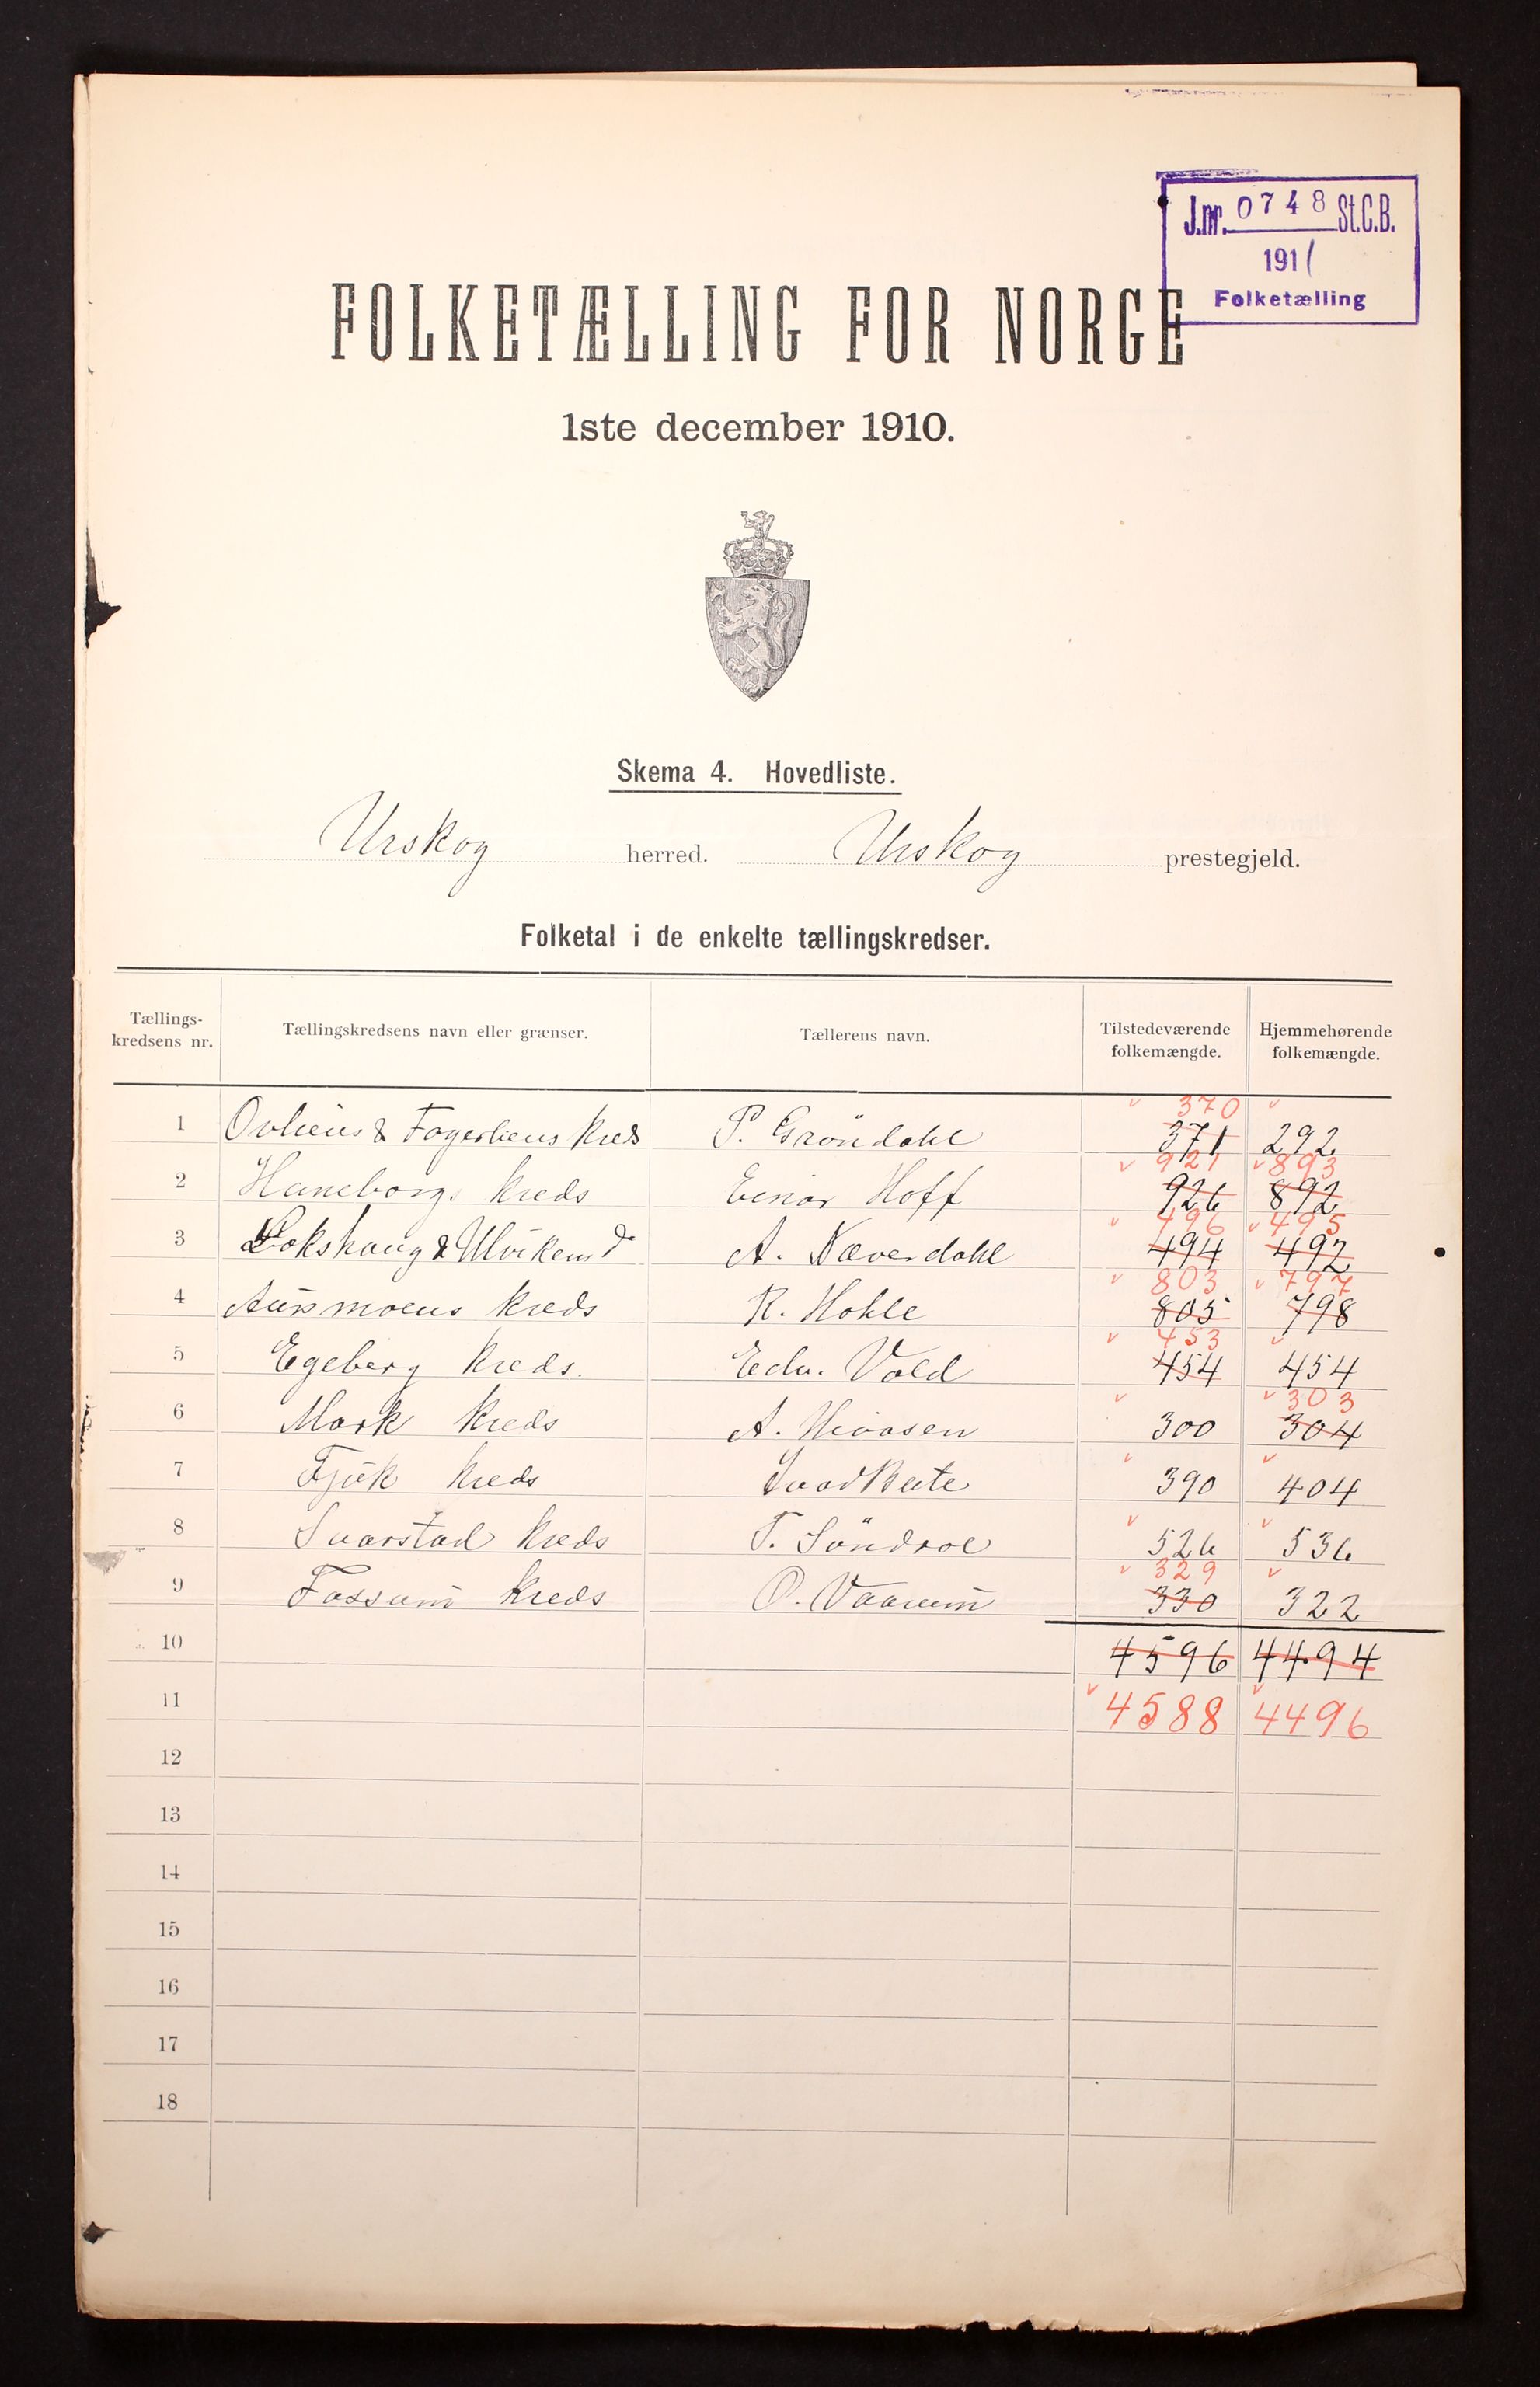 J.nr. 0748 St.C.B.
1911
Folketælling
FOLKETÆLLING FOR NORGE
1ste december 1910.
Skema 4. Hovedliste.
Urskog herred. Urskog prestegjeld.
Folketal i de enkelte tællingskredser.
Tællings-kredsens nr. Tællingskredsens navn eller grænser. Tællerens navn. Tilstedeværende folkemængde. Hjemmehørende folkemængde.
370
1 Ovliens & Fagerliens kreds P. Gröndahl 371 292
921 893
2 Haneborgs kreds Einar Hoff 926 892
496 495
3 Lokshaug & Ulviken do A. Næverdahl 494 492
803 797
4 Aursmoens kreds R. Hohle 805 798
453
5 Egeberg kreds. Edv. Vold 454 454
303
6 Mark kreds A. 300 304
7 Fjuk kreds 390 404
8 Svarstad kreds T. Söndrol 526 536
329
9 Fossum kreds O. Vaarum 330 322
10 4596 4494
11 4588 4496
12
13
14
15
16
17
18